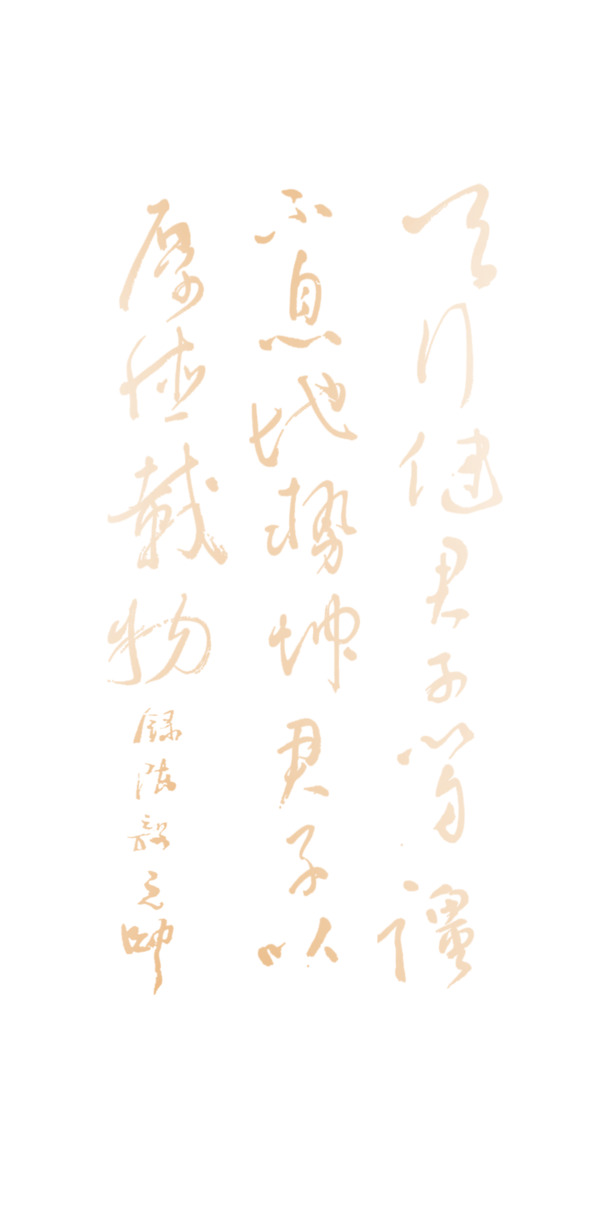 天行健君子以自彊
不息地势坤君子以
厚德载物
录陈毅元帅